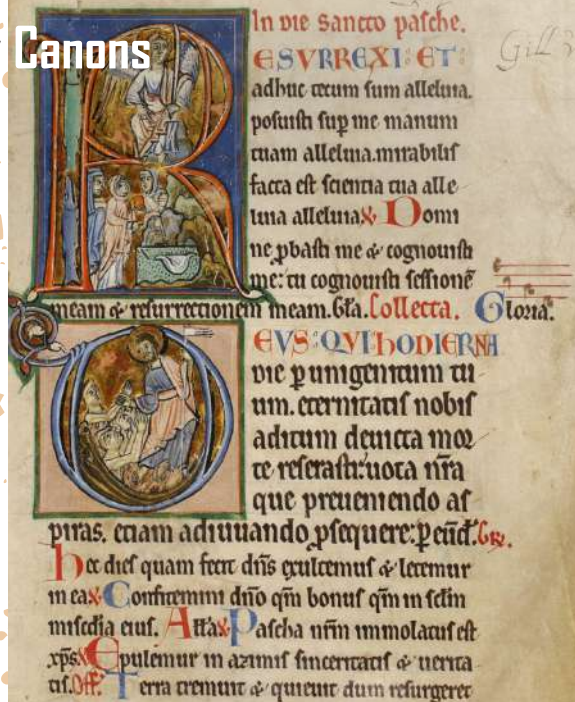 Canons
In die sancto pasche.
Gill 3
ESVRREXI: ET
adhuc tecum sum alleluia.
posuisti sup me manum
tuam alleluia. mirabilis
facta est scientia tua alle
luia alleluia. Domi
ne pbasti me & cognouisti
me: tu cognouisti sessionē
meam & resurrectionem meam. Gła. Collecta. Gloria.
EVS: QVI hODIERNA
die p unigenitum tu
um. eternitatis nobis
aditum deuicta mor
te reserasti: uota nr̄a
que preueniendo as
piras. etiam adiuuando psequere: p eūd. Gr.
hec dies quam fecit dn̄s exultemus & letemur
in ea. Confitemini dn̄o qm̄ bonus qm̄ in sc̄lm
misc̄dia eius. Alła. Pascha nr̄m immolatus est
xp̄s. Epulemur in azimis sinceritatis & uerita
tis. Off. Terra tremuit & quieuit dum resurgeret